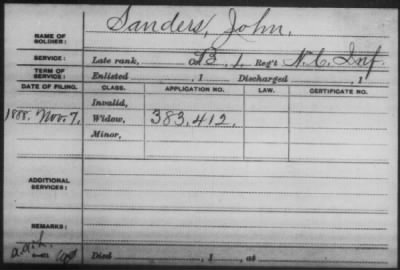 NAME OF SOLDIER: Sanders, John.
SERVICE: Late rank, Co. B, 1, Reg't N.C. Inf.
TERM OF SERVICE: Enlisted , 1 Discharged , 1
DATE OF FILING. CLASS. APPLICATION NO. LAW. CERTIFICATE NO.
Invalid,
1888. Nov. 7. Widow, 383,412.
Minor,
ADDITIONAL SERVICES:
REMARKS:
Died , 1 , at